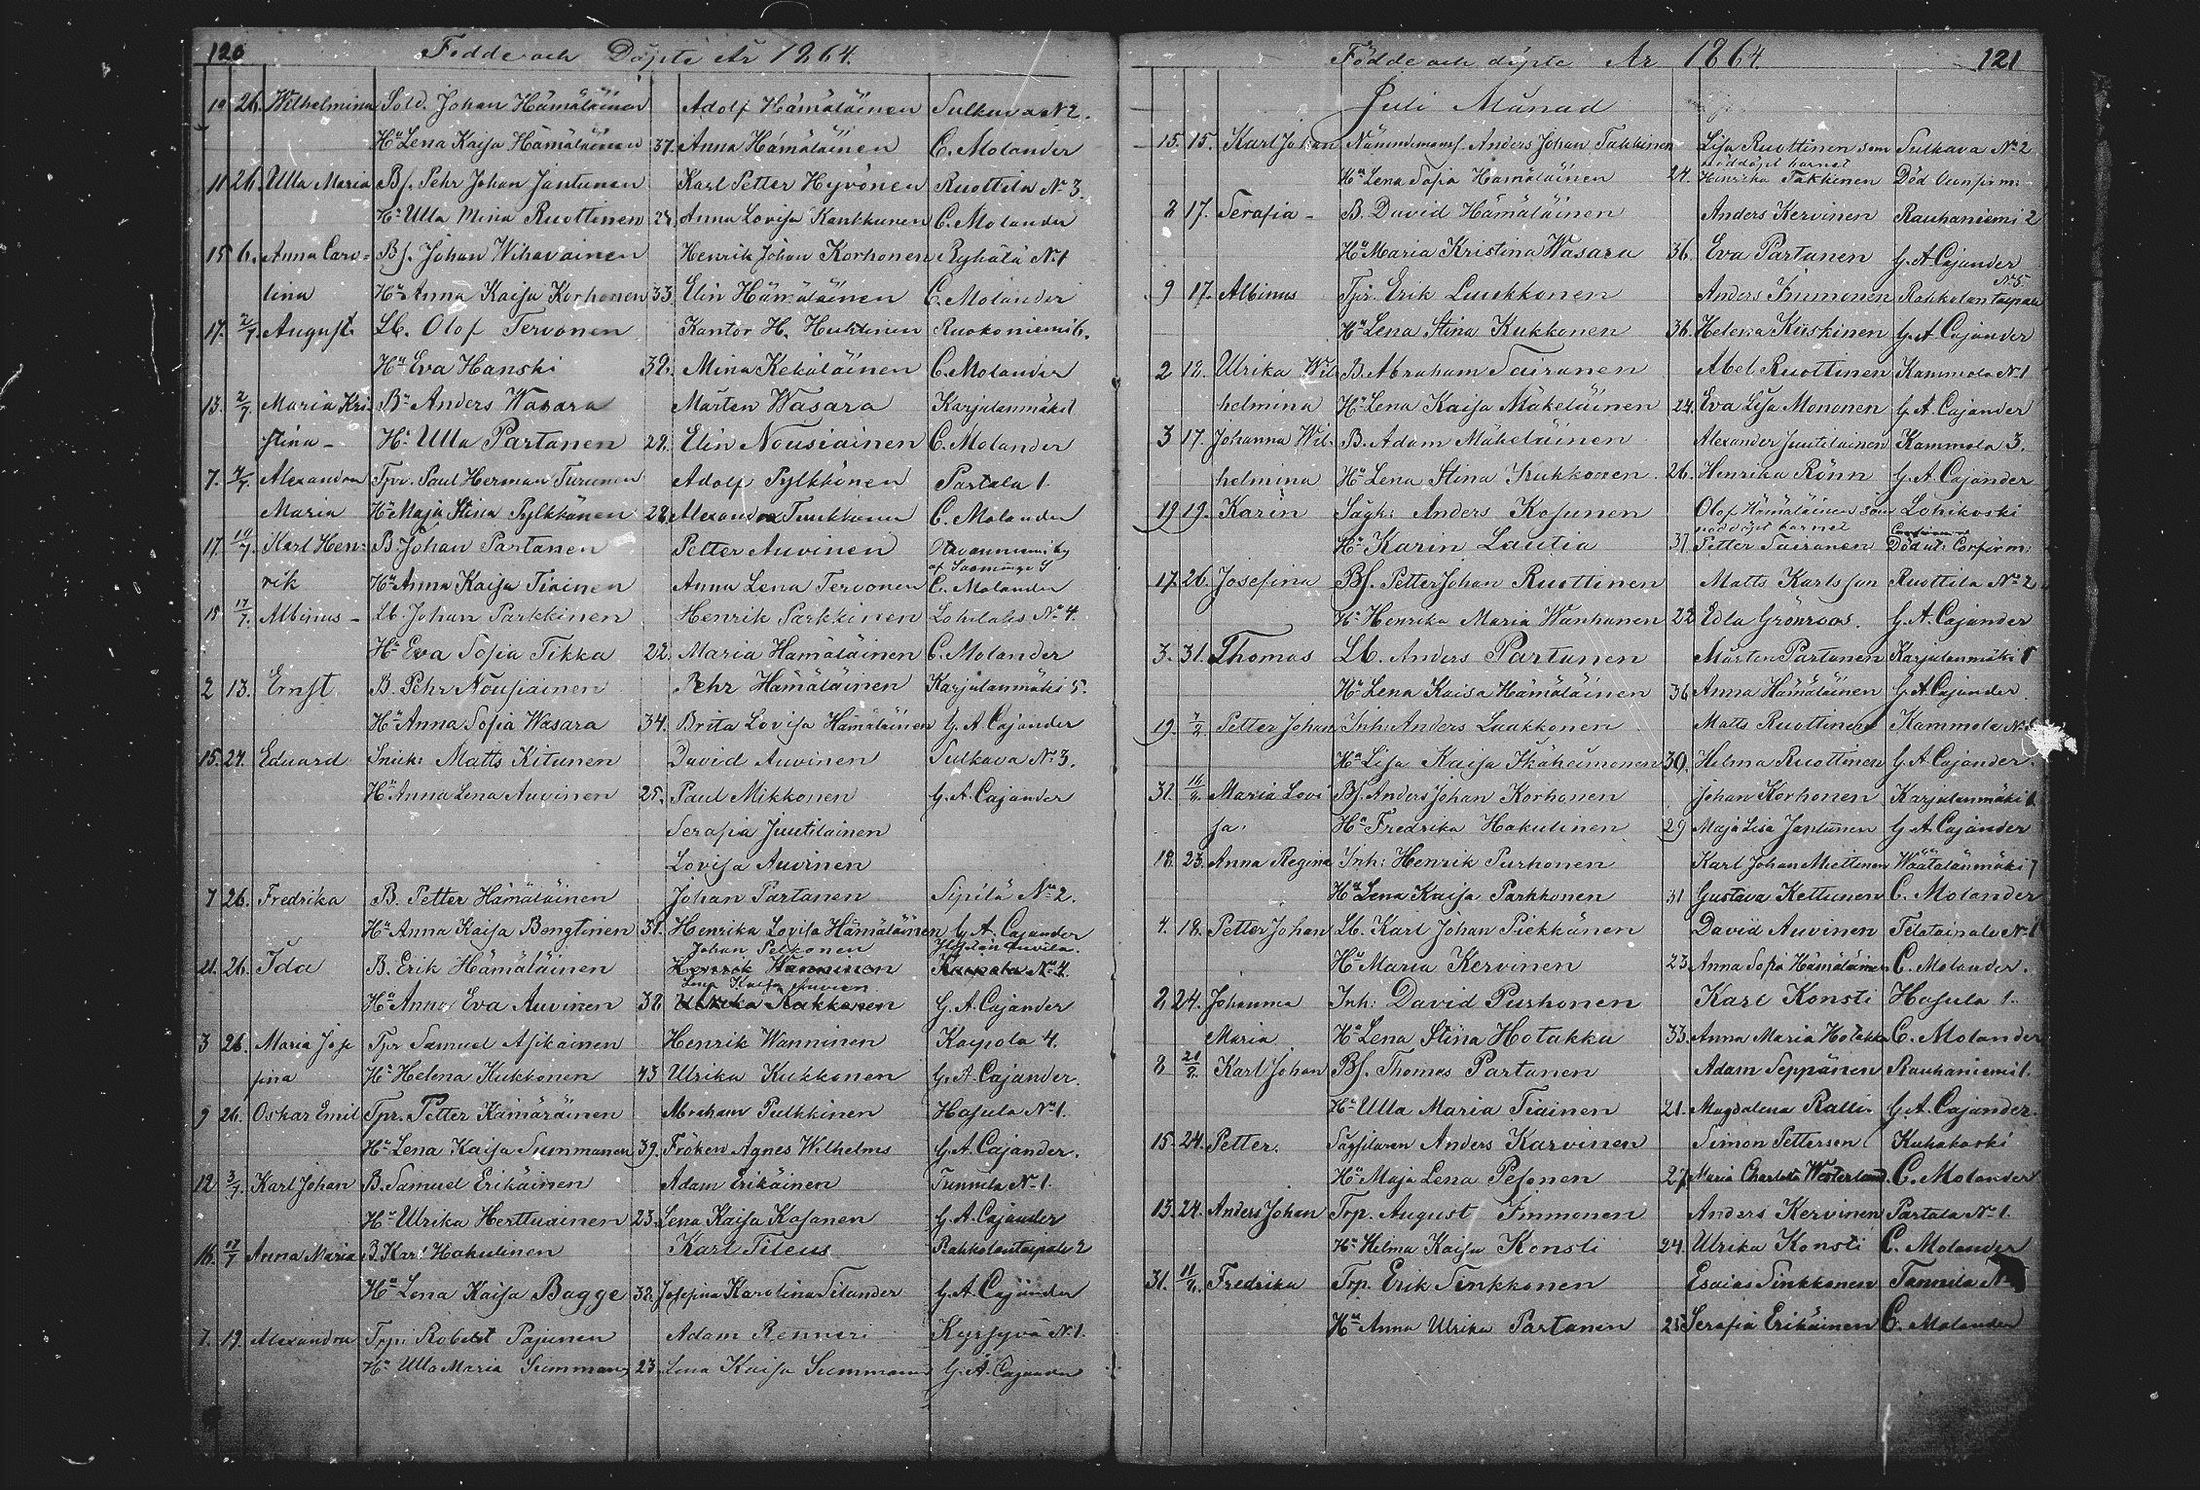 120 Födde och Döpte År 1864.
19 26. Wilhelmina Sold. Johan Hämäläinen Adolf Hämäläinen Sulkava N 2.
Hu Lena Kaisa Hämäläinen 37. Anna Hämäläinen C. Molander
11 26. Ulla Maria Bf. Pehr Johan Jantunen Karl Petter Hyvönen Ruottila No 3.
Hu Ulla Mina Ruottinen Anna Lovisa Kankkunen C. Molander
15 6. Anna Caro- Bf. Johan Wihavainen Henrik Johan Korhonen Ryhälä N:1
lina Hu Anna Kaisa Korhonen 33. Elin Hämäläinen C. Molander
17. 2/7. August Lb. Olof Tervonen Kantor H. Huttunen Ruokoniemi 6.
Hu Eva Hanski 32. Mina Kekäläinen C. Molander
13. 2/7 Maria Kri Bn Anders Wasara Mårten Wasara Karjulanmäki
stina - Hu Ulla Partanen 22. Elin Nousiainen C. Molander
7. Alexandra Tpr. Paul Herman Turunen Adolf Pylkkönen Partala 1
Maria Hu Maja Stina Pylkkänen 22. Alexandra Tuukkanen C. Molander
17. 10/7. Karl Hen- B. Johan Partanen Petter Auvinen
rik Hu Anna Kaisa Tiainen Anna Lena Tervonen C. Molander
18 17/7. Albinus - Lb. Johan Parkkinen Henrik Parkkinen Lohilaks No 4.
Hu Eva Sofia Tikka 22. Maria Hämäläinen C. Molander
2 13. Ernst B. Pehr Nousiainen Pehr Hämäläinen Karjulanmäki 5.
Hu Anna Sofia Wasara 34. Brita Lovisa Hämäläinen G. A. Cajander
15. 24. Eduard Snick: Matts Kitunen David Auvinen Sulkava No 3.
Hu Anna Lena Auvinen 25. Paul Mikkonen G. A. Cajander
Serafia Juutilainen
Lovisa Auvinen
7 26. Fredrika B. Petter Hämäläinen Johan Partanen Sipilä No 2.
Hu Anna Kaisa Bengtinen 31. Henrika Lovisa Hämäläinen G. A. Cajander
Johan Pekkonen
21. 26. Ida B. Erik Hämäläinen Henrik Wanninen Kaipola No 4.
Hu Anna Eva Auvinen 32 Ulrika Kukkonen G. A. Cajander
3 26. Maria Jose Tpr Samuel Asikainen Henrik Wanninen Kaipola 4.
fina Hu Helena Kukkonen 43 Ulrika Kukkonen G. A. Cajander.
9 26. Oskar Emil Tpr. Petter Kämäräinen Abraham Pulkkinen Hasula No 1.
Hu Lena Kaisa Summanen 39. Fröken Agnes Wilhelms G. A. Cajander.
12 3/7. Karl Johan B. Samuel Erikäinen Adam Erikäinen Tunnila No 1.
Hu Ulrika Herttuainen 23. Lena Kaisa Kosonen G. A. Cajander
16. 17/7 Anna Maria B. Karl Hakulinen Karl Tileus Rahkolantaipale 2
Hu Lena Kaisa Bagge 32. Josefina Karolina Silander G. A. Cajander
7. 19. Alexandra Trp: Robert Pajunen Adam Renneri Kyrsyvä N:1.
Hu Ulla Maria Summanen 23. Lena Kaisa Summanen G. A. Cajander
Födde och döpte År 1864. 121
Juli Månad
15. 15. Karl Johan Nämndemans. Anders Johan Takkinen Lisa Ruottinen som Sulkava No 2
nöddöpt barnet
Hu Lena Sofia Hämäläinen 24. Henrika Takkinen Död
8 17. Serafia - B. David Hämäläinen Anders Kervinen Rauhaniemi 2
Hu Maria Kristina Wasara 36. Eva Partanen G. A. Cajander
No 5.
9 17. Albinus Tpr. Erik Luukkonen Anders Immonen Rahkolantaipale
Hu Lena Stina Kukkonen 36. Helena Kuskinen G. A. Cajander
2 12. Ulrika Wil- B. Abraham Sairanen Abel Ruottinen Kammola N:1
helmina Hu Lena Kaisa Mäkeläinen 24. Eva Lisa Mononen G. A. Cajander
3 17. Johanna Wil- B. Adam Mäkeläinen Alexander Juutilainen Kammola 3.
helmina Hu Lena Stina Kukkonen 26. Henrika Rönn G. A. Cajander
19 19. Karin Sågk: Anders Kosunen Olof Hämäläinen som Lohikoski
nöddöpt barnet
Hu Karin Lautia 37 Petter Sairanen Död
17. 26. Josefina Bf. Petter Johan Ruottinen Matts Karlsson Ruottila No 2
Hu Henrika Maria Wanhanen 22 Edla Grönroos. G. A. Cajander
3. 31. Thomas Lb. Anders Partanen Mårten Partanen Karjulanmäki 1
Hu Lena Kaisa Hämäläinen 36 Anna Hämäläinen G. A. Cajander.
19. Petter Johan Inh: Anders Laakkonen Matts Ruottinen Kammola
Hu Lisa Kaisa Ikäheimonen 30. Helma Ruottinen G. A. Cajander.
31. Maria Lovi Bf. Anders Johan Korhonen Johan Korhonen Karjulanmäki
sa. Hu Fredrika Hakulinen 29 Maja Lisa Jantunen G. A. Cajander
18. 23. Anna Regina Inh: Henrik Purhonen Karl Johan Miettinen Wäätälänmäki 7
Hu Lena Kaisa Parkkonen 31 Gustava Kettunen C. Molander
4. 18. Petter Johan Lb. Karl Johan Piekkänen David Auvinen Telataipale N:1
Hu Maria Kervinen 23. Anna Sofia Hämäläinen C. Molander.
2 24. Johanna Inh: David Purhonen Karl Konsti Hasula 1.
Maria Hu Lena Stina Hotakka 33. Anna Maria Hotakka C. Molander
8 21/8. Karl Johan Bf. Thomas Partanen Adam Seppänen Rauhaniemi 1.
Hu Ulla Maria Tiainen 21. Magdalena Ralli G. A. Cajander.
15 24. Petter. Sågfilaren Anders Karvinen Simon Petterson Kuhakoski
Hu Maja Lena Pesonen 27. Maria Charlotta Westerlund C. Molander
13. 24. Anders Johan Trp. August Immonen Anders Kervinen Partala No 1.
Hu Helma Kaisa Konsti 24. Ulrika Konsti C. Molander
31. Fredrika Trp. Erik Sinkkonen Esaias Sinkkonen Tannila
Hu Anna Ulrika Partanen 25 Serafia Erikäinen C. Molander